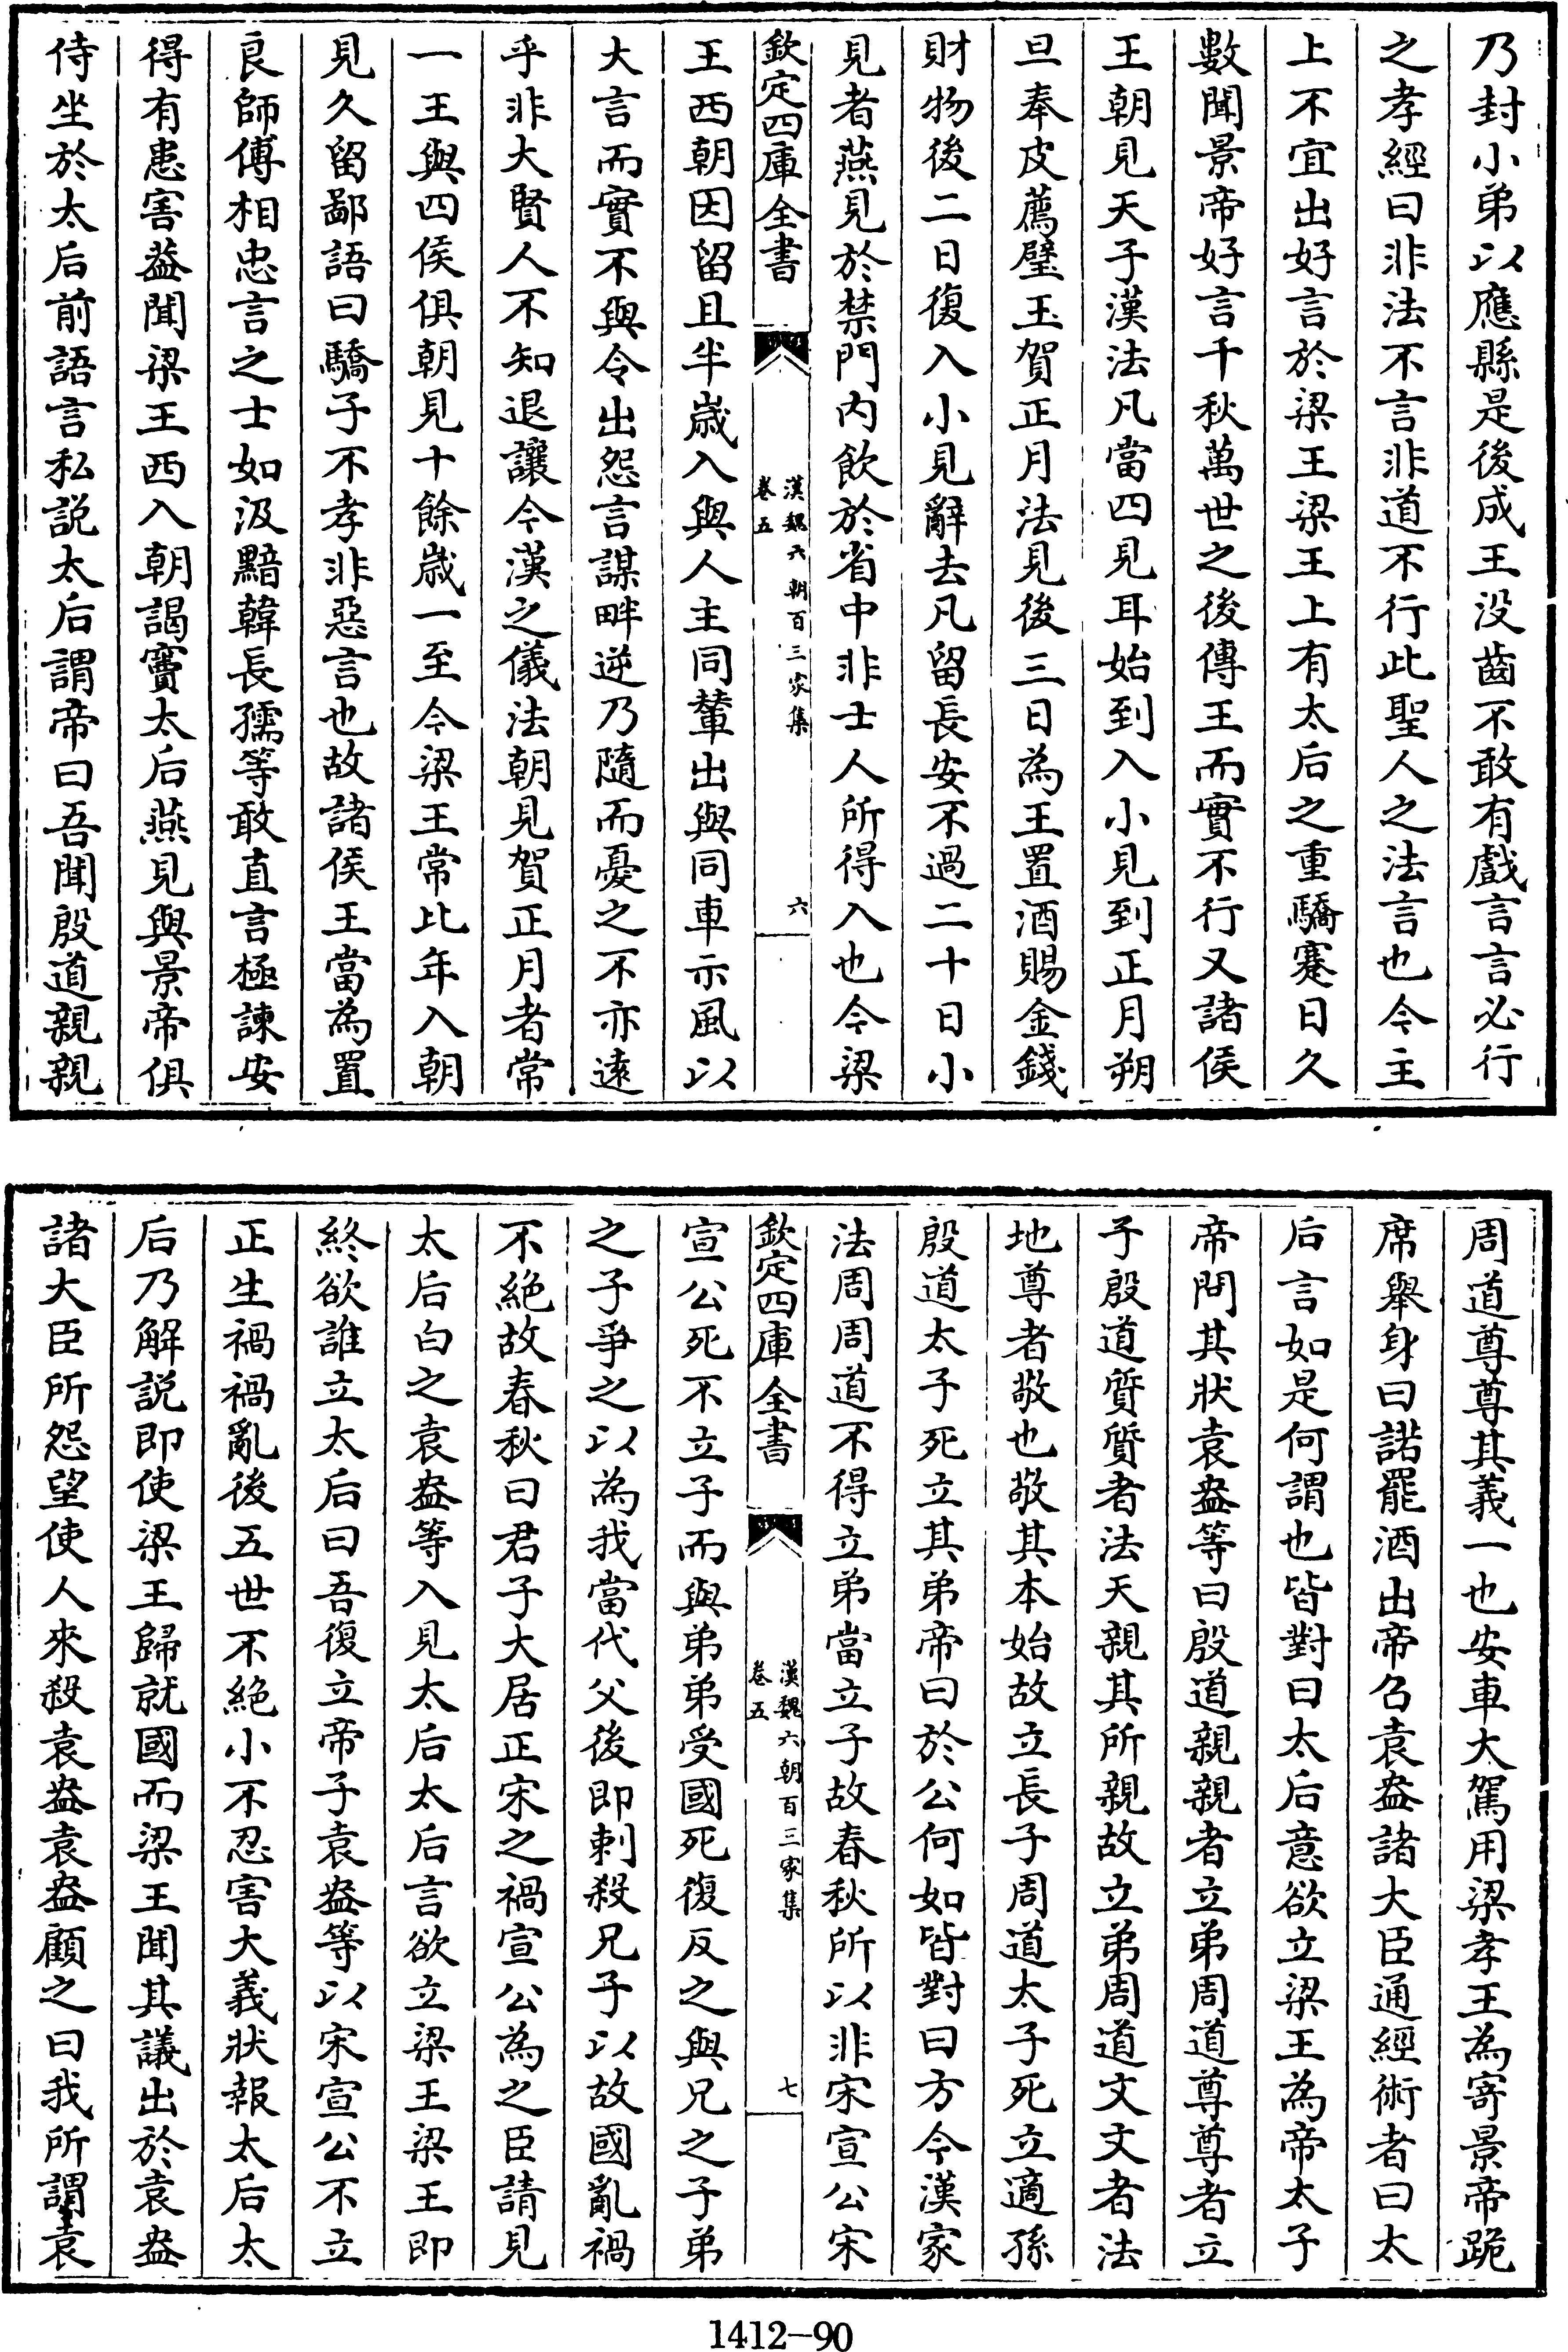 乃封小弟以應縣是後成王没齒不敢有戲言言必行
之孝經曰非法不言非道不行此聖人之法言也今主
上不宜出好言於梁王梁王上有太后之重驕蹇日久
數聞景帝好言千秋萬世之後傳王而實不行又諸侯
王朝見天子漢法凡當四見耳始到入小見到正月朔
旦奉皮薦璧玉賀正月法見後三日為王置酒賜金錢
財物後二日復入小見辭去凡留長安不過二十日小
見者燕見於禁門内飲於省中非士人所得入也今梁
欽定四庫全書
漢魏六朝百三家集
卷五
六
王西朝因留且半嵗入與人主同輦出與同車示風以
大言而實不與令出怨言謀畔逆乃隨而憂之不亦遠
乎非大賢人不知退讓今漢之儀法朝見賀正月者常
一王與四侯俱朝見十餘嵗一至今梁王常比年入朝
見久留鄙語曰驕子不孝非惡言也故諸侯王當為置
良師傅相忠言之士如汲黯韓長孺等敢直言極諫安
得有患害葢聞梁王西入朝謁竇太后燕見與景帝俱
侍坐於太后前語言私説太后謂帝曰吾聞殷道親親
周道尊尊其義一也安車大駕用梁孝王為寄景帝跪
席舉身曰諾罷酒出帝召袁盎諸大臣通經術者曰太
后言如是何謂也皆對曰太后意欲立梁王為帝太子
帝問其狀袁盎等曰殷道親親者立弟周道尊尊者立
子殷道質質者法天親其所親故立弟周道文文者法
地尊者敬也敬其本始故立長子周道太子死立適孫
殷道太子死立其弟帝曰於公何如皆對曰方今漢家
法周周道不得立弟當立子故春秋所以非宋宣公宋
欽定四庫全書
漢魏六朝百三家集
卷五
七
宣公死不立子而與弟弟受國死復反之與兄之子弟
之子爭之以為我當代父後即刺殺兄子以故國亂禍
不絶故春秋曰君子大居正宋之禍宣公為之臣請見
太后白之袁盎等入見太后太后言欲立梁王梁王即
終欲誰立太后曰吾復立帝子袁盎等以宋宣公不立
正生禍禍亂後五世不絶小不忍害大義狀報太后太
后乃解説即使梁王歸就國而梁王聞其議出於袁盎
諸大臣所怨望使人來殺袁盎袁盎顧之曰我所謂袁
1412-90